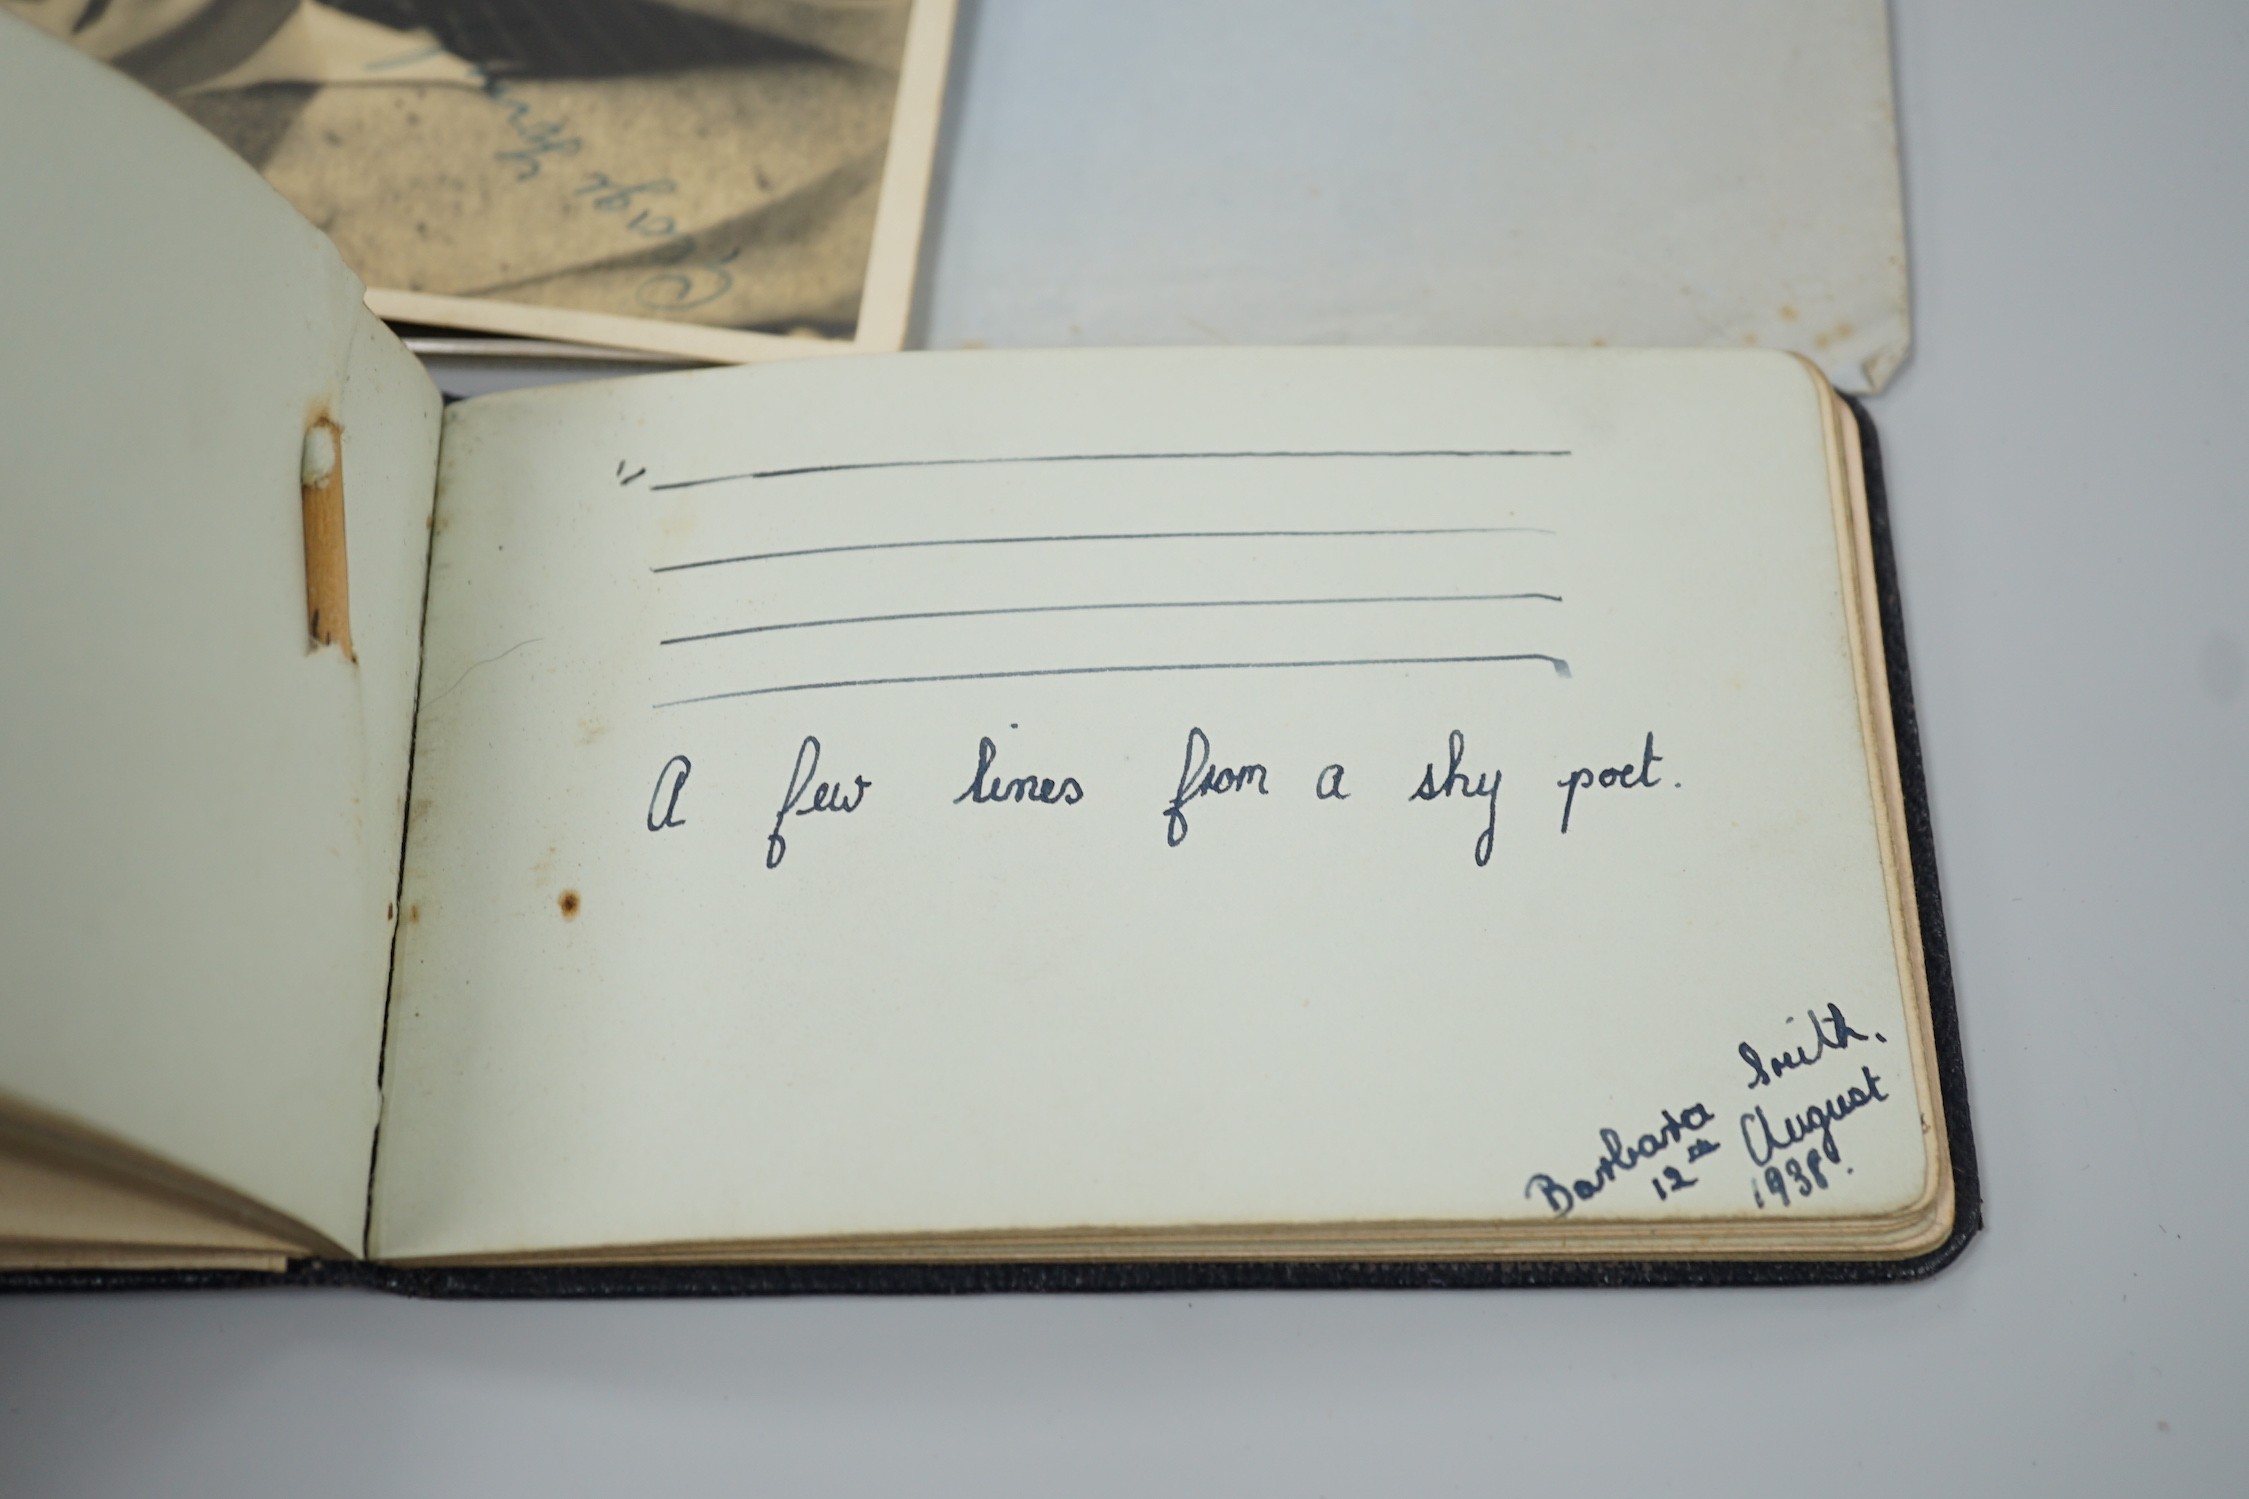 "
A few lines from a shy poet.
Barbara Smith.
12th August
1938.